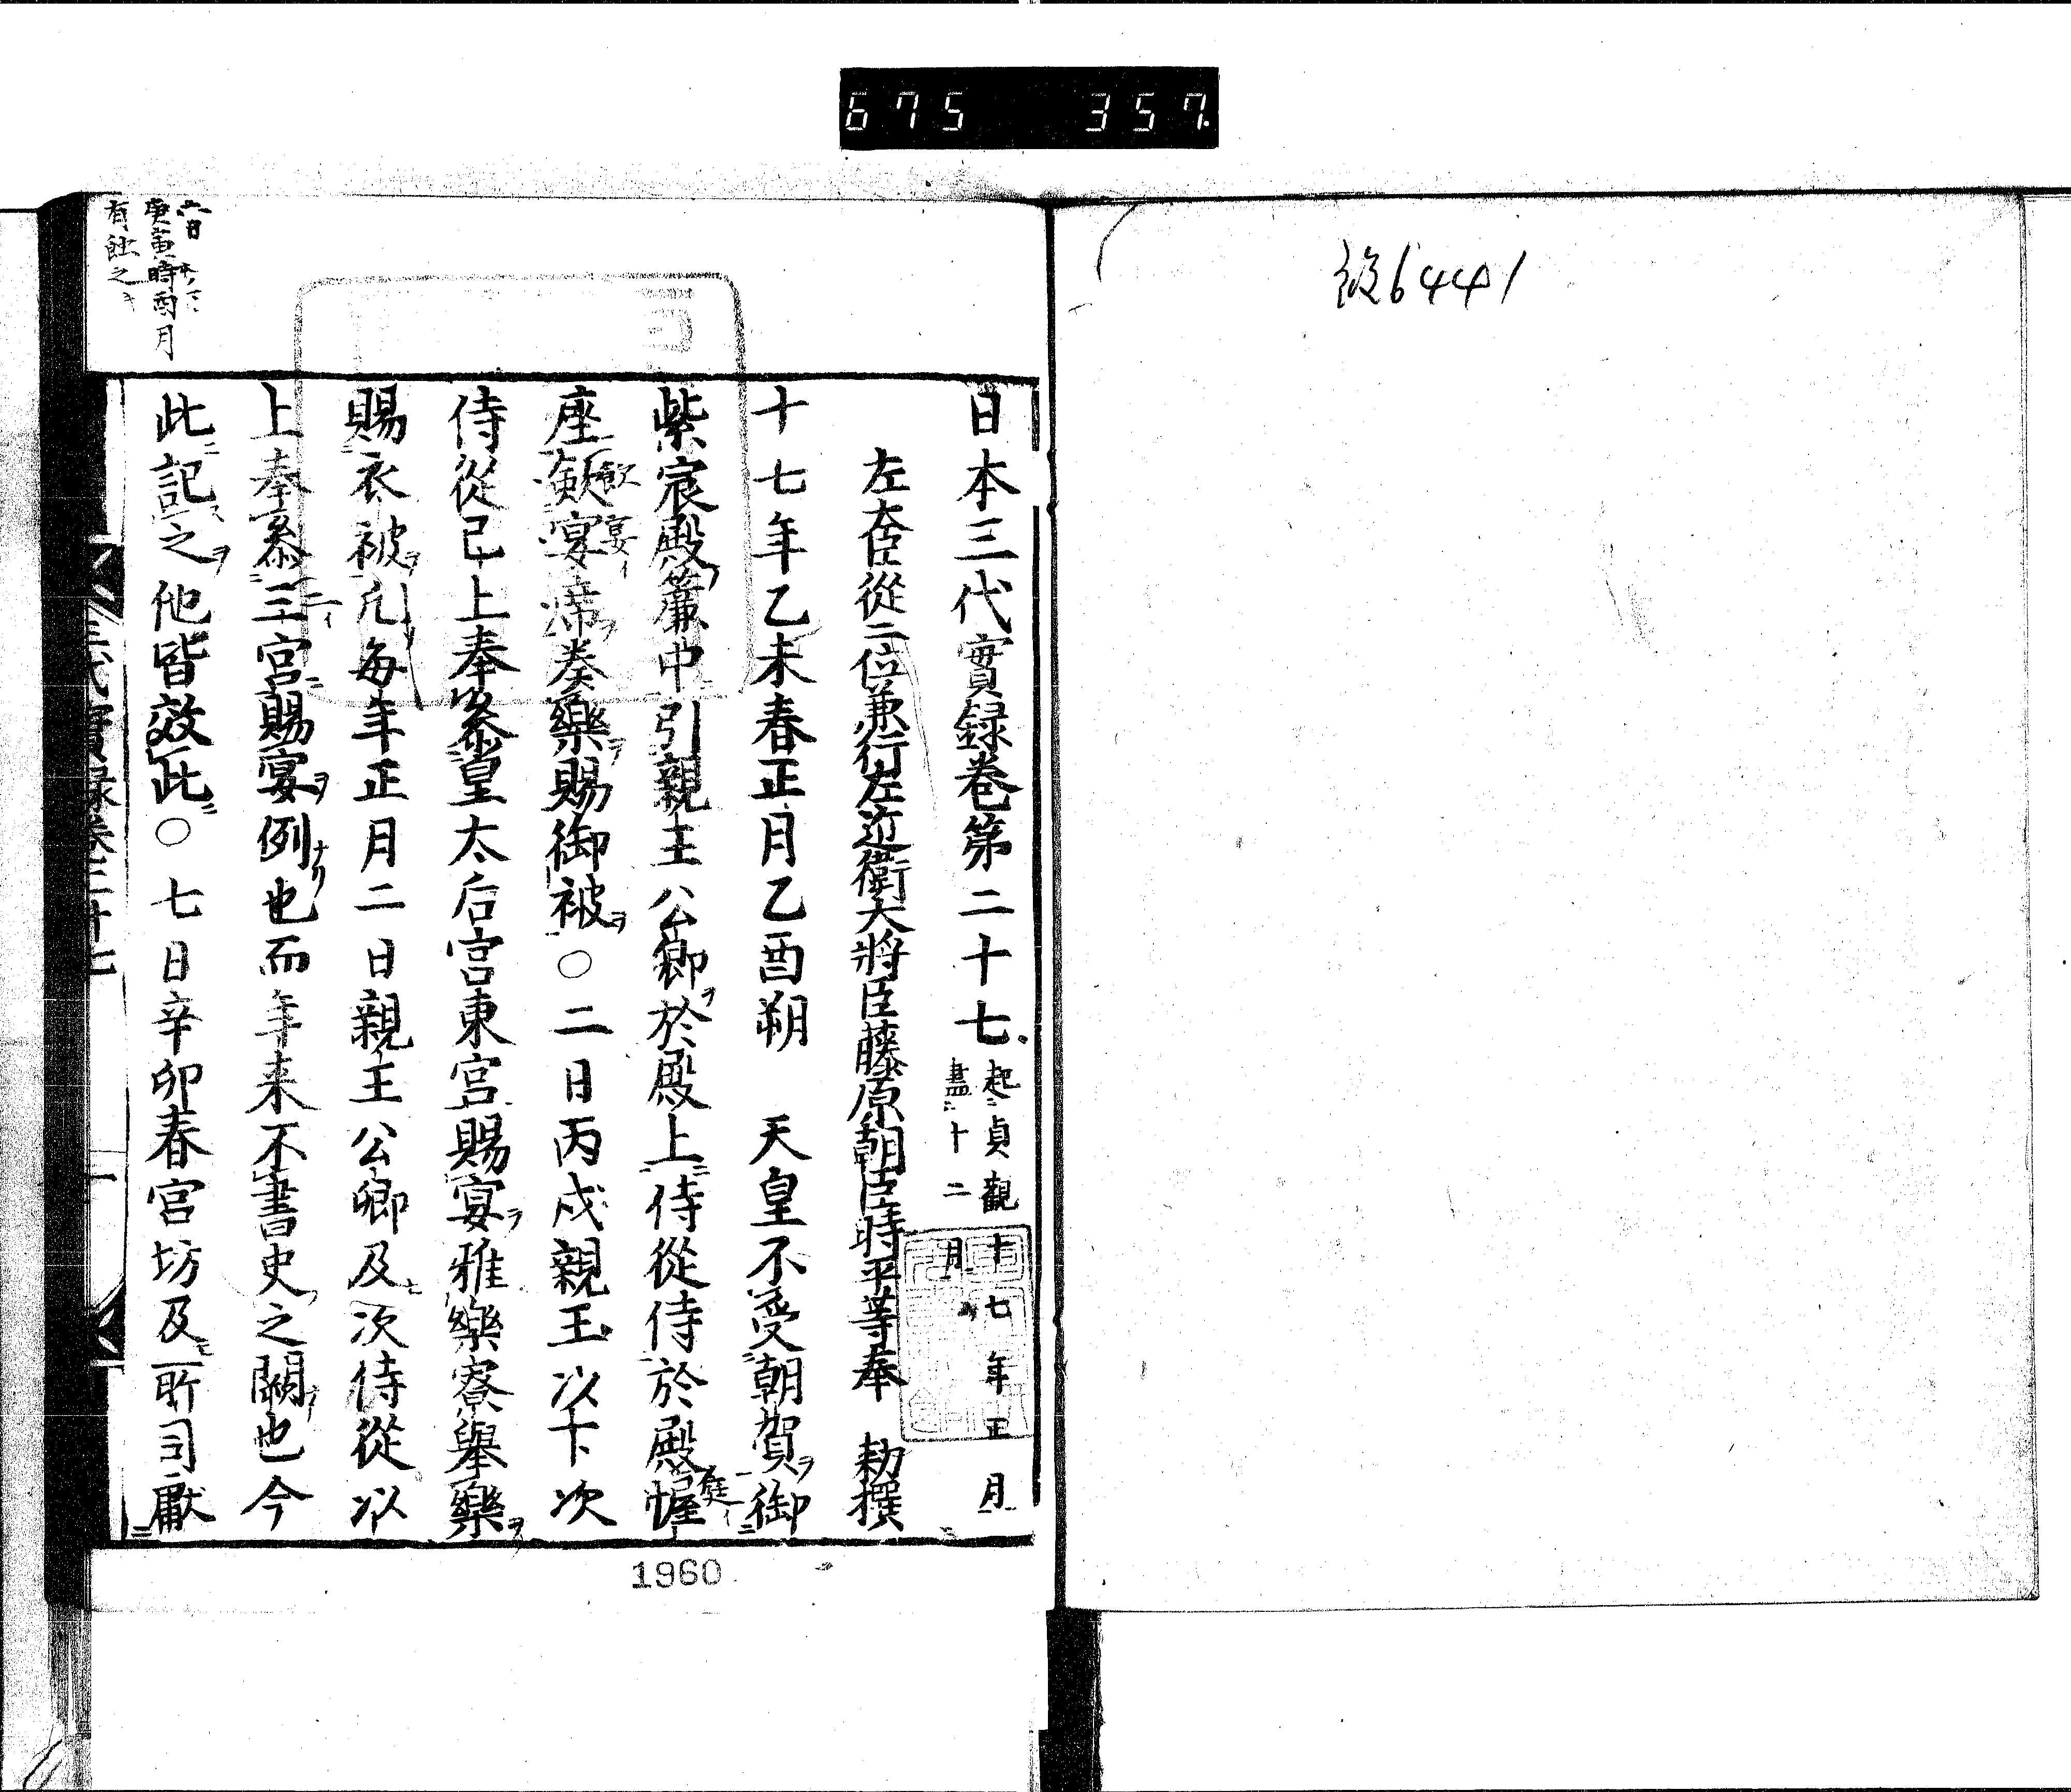 675 357.
後6441
日本三代實録卷第二十七 起貞觀十七年正月
盡十二月
左大臣從二位兼行左近衛大將臣藤原朝臣時平等奉 勅撰
十七年乙未春正月乙酉朔 天皇不受朝賀御
紫宸殿簾中引親王公卿於殿上侍從侍於殿幄
座 宴 奏樂賜御被〇二日丙戌親王以下次
侍從已上奉參皇太后宮東宮賜宴雅樂寮舉樂
賜衣被凡每年正月二日親王公卿及次侍從以
上奉參三宮賜宴例也而年来不書史之闕也今
此記之他皆效此〇七日辛卯春宮坊及所司獻
庭イ
宴イ
六日
庚寅時酉月
有蝕之
三代實録卷二十七
一
1960